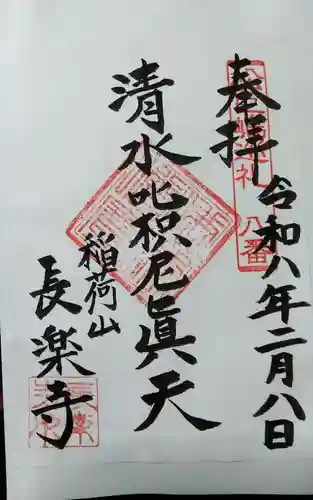 奉拝
令和八年二月八日
清水吒枳尼真天
稲荷山
長楽寺
八番